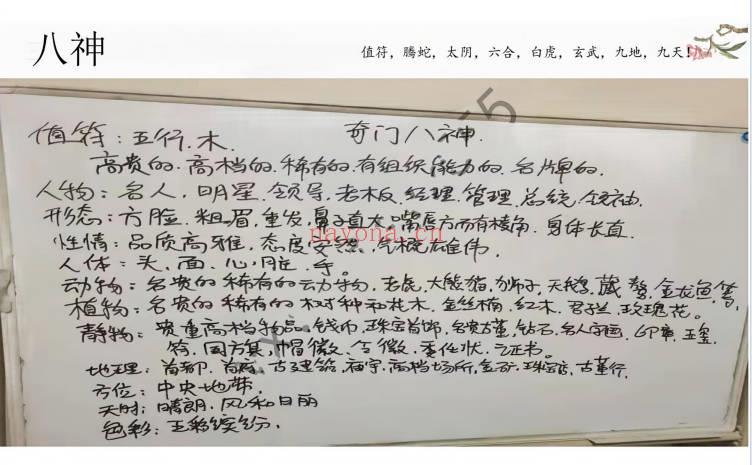 八神
值符，腾蛇，太阴，六合，白虎，玄武，九地，九天！
值符：五行.木. 奇门八神.
高贵的.高档的.稀有的.有组织能力的.名牌的.
人物：名人.明星.领导.老板.经理.管理.总统.领袖.
形态：方脸.粗眉.重发.鼻子直大.嘴唇方而有棱角.身体长直.
性情：品质高雅.态度安然.气概雄伟.
人体：头.面.心脏.手.
动物：名贵的稀有的动物.老虎.大熊猫.狮子.天鹅.藏獒.金龙鱼等.
植物：名贵的稀有的树种和花木.金丝楠.红木.君子兰.玫瑰花.
静物：贵重高档物品.钱币.珠宝首饰.名贵古董.钻石.名人字画.印章.玉玺
符.国方旗.帽徽.令徽.委任状.证书.
地理：首都.首府.古建筑.庙宇.高档场所.金矿.珠宝店.古董行.
方位：中央地带.
天时：晴朗.风和日丽
色彩：五彩缤纷.
nayona.cn